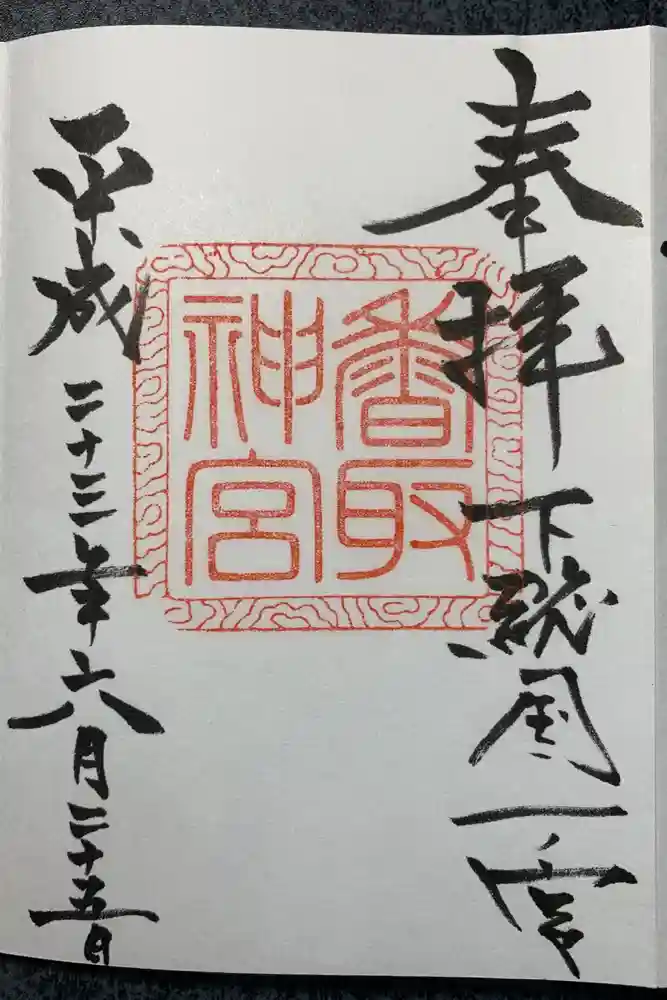 奉拝
下総国一宮
香取
神宮
平成二十三年六月二十五日